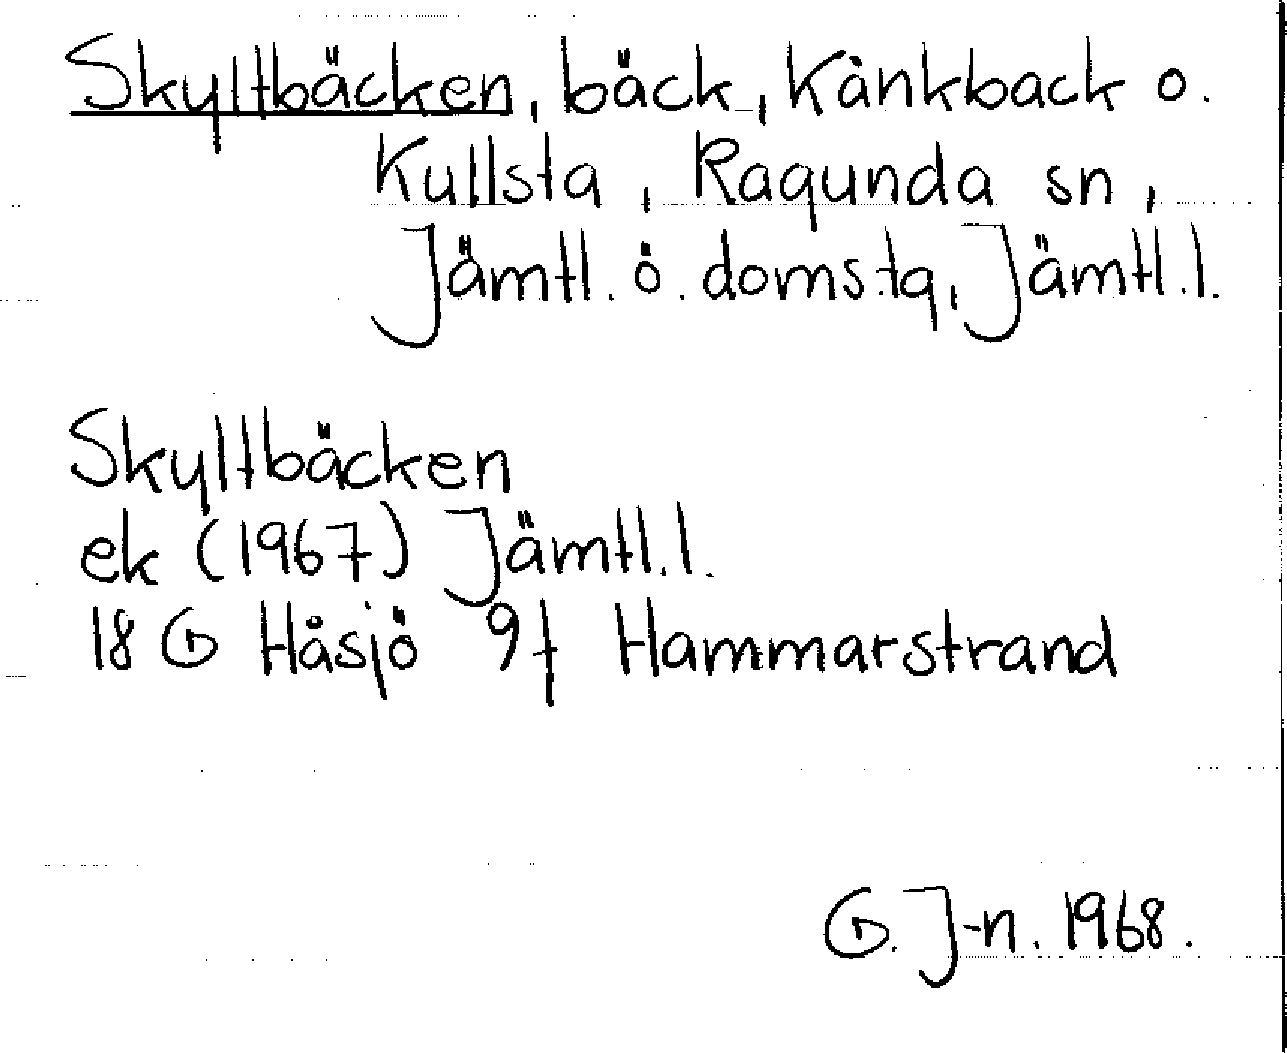 Skyltbäcken, bäck, Kånkback o.
Kullsta, Ragunda sn,
Jämtl. ö. doms.tg, Jämtl.l.
Skyltbäcken
ek (1967) Jämtl.l.
18 G Håsjö 9f Hammarstrand
G. J-n. 1968.